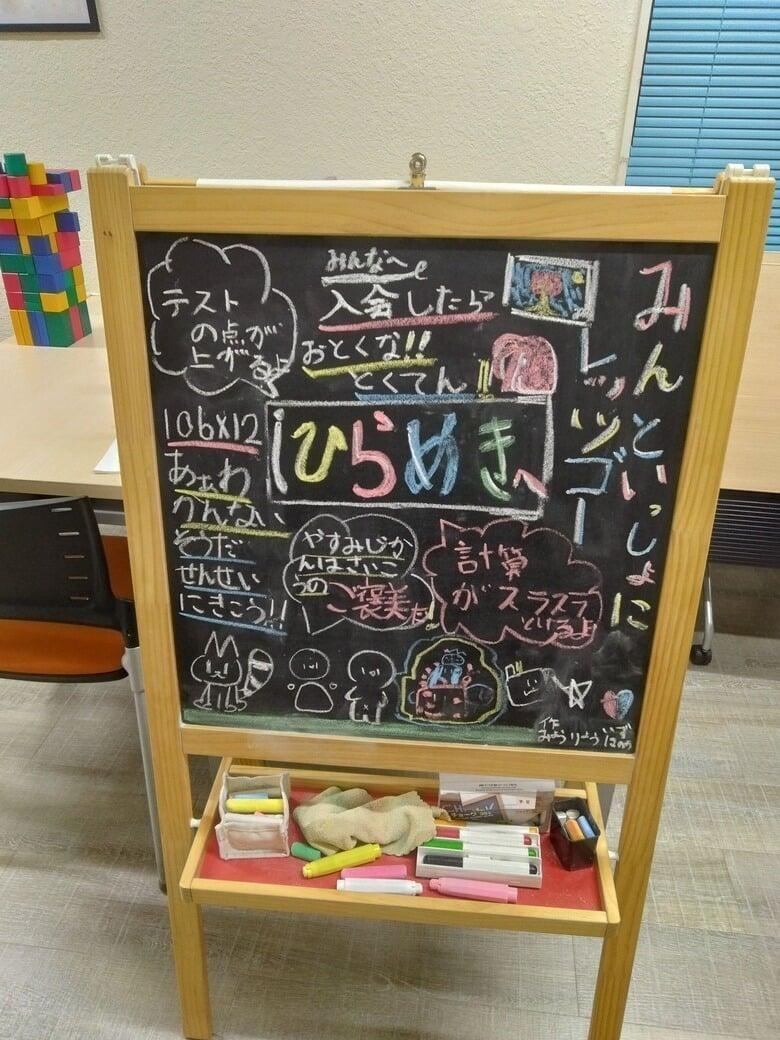 みんなへ
入会したら
おとくな!!
とくてん!!
テスト
の点が
上がるよ
みんといっしょに
レッツゴー
ひらめきへ
106×12
あぁわ
かんない
そうだ
せんせい
にきこう!!
やすみじか
んはさいこ
うの
ご褒美だ!
計算
がスラスラ
といけるよ
作